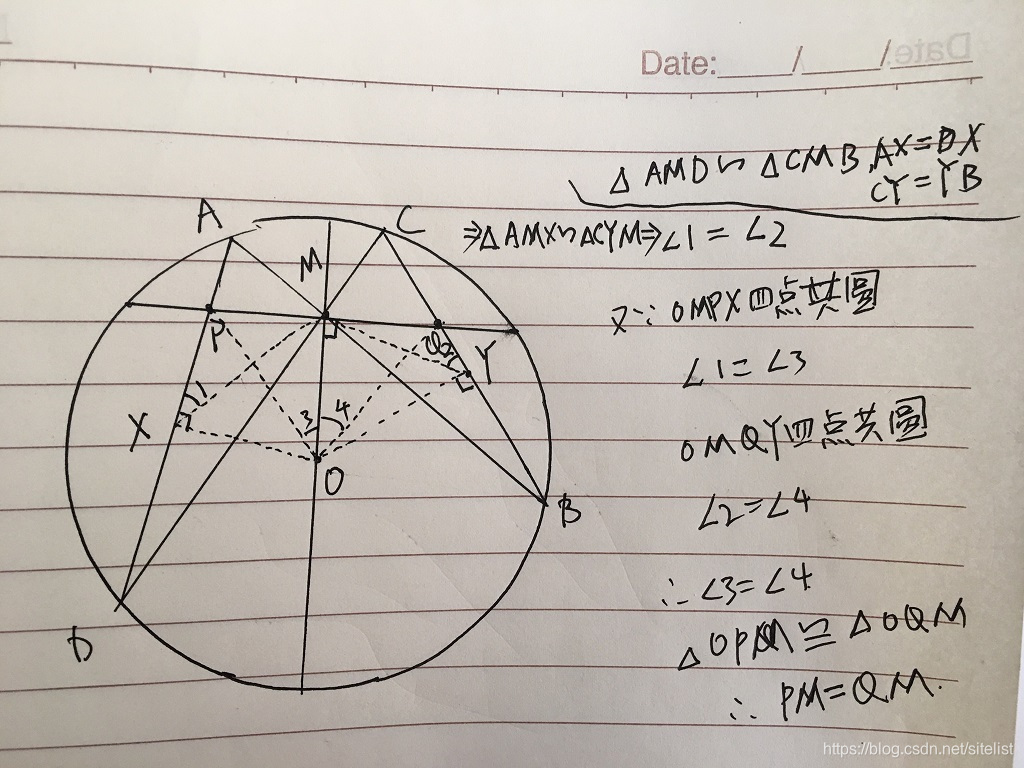 Date:____/____/____
△AMD∽△CMB,AX=DX
CY=YB
⇒△AMX∽△CYM⇒∠1=∠2
又∵OMPX四点共圓
∠1=∠3
OMQY四点共圓
∠2=∠4
∴∠3=∠4
△OPM≌△OQM
∴PM=QM.
A
C
M
P
Q
2
Y
1
X
3
4
O
B
D
https://blog.csdn.net/sitelist